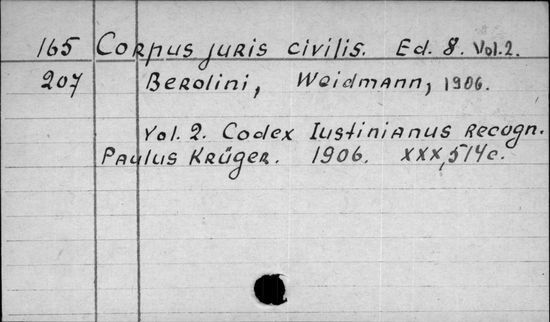 165 Corpus juris civilis. Ed. 8. Vol.2.
207 Berolini, Weidmann, 1906.
Vol. 2. Codex Iustinianus recogn.
Paulus Krüger. 1906. XXX, 514c.